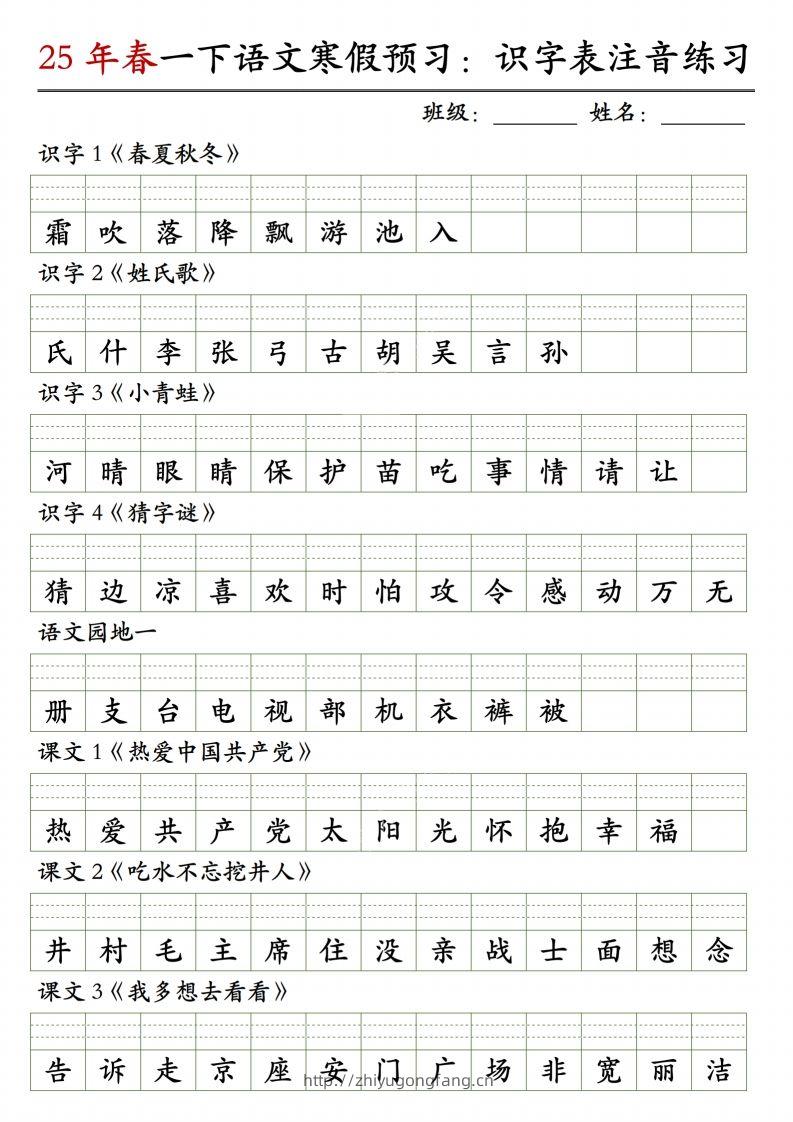 25 年春一下语文寒假预习：识字表注音练习
班级：________ 姓名：________
识字 1《春夏秋冬》
霜 吹 落 降 飘 游 池 入
识字 2《姓氏歌》
氏 什 李 张 弓 古 胡 吴 言 孙
识字 3《小青蛙》
河 晴 眼 睛 保 护 苗 吃 事 情 请 让
识字 4《猜字谜》
猜 边 凉 喜 欢 时 怕 攻 令 感 动 万 无
语文园地一
册 支 台 电 视 部 机 衣 裤 被
课文 1《热爱中国共产党》
热 爱 共 产 党 太 阳 光 怀 抱 幸 福
课文 2《吃水不忘挖井人》
井 村 毛 主 席 住 没 亲 战 士 面 想 念
课文 3《我多想去看看》
告 诉 走 京 座 安 门 广 场 非 宽 丽 洁
http://zhiyugongfang.cn